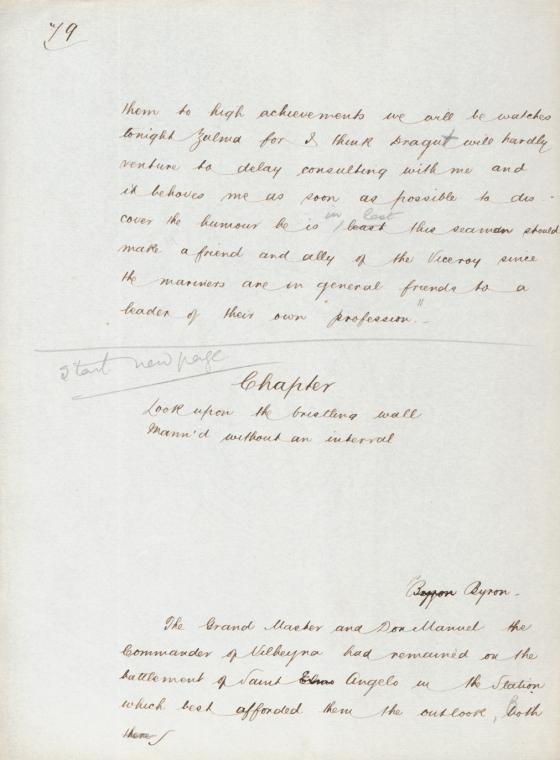 79
them to high achievements we will be watches
tonight Zulma for I think Dragut will hardly
venture to delay consulting with me and
it behoves me as soon as possible to dis-
in last
cover the humour he is / least this seaman should
make a friend and ally of the Viceroy since
the mariners are in general friends to a
leader of their own "profession."-
Start new page
Chapter
Look upon the bristling wall
Mann'd without an interval
Byron.
The Grand Master and Don Manuel the
Commander of Vilheyna had remained on the
battlement of Saint Elmo Angelo in the Station
which best afforded them the outlook, both
there